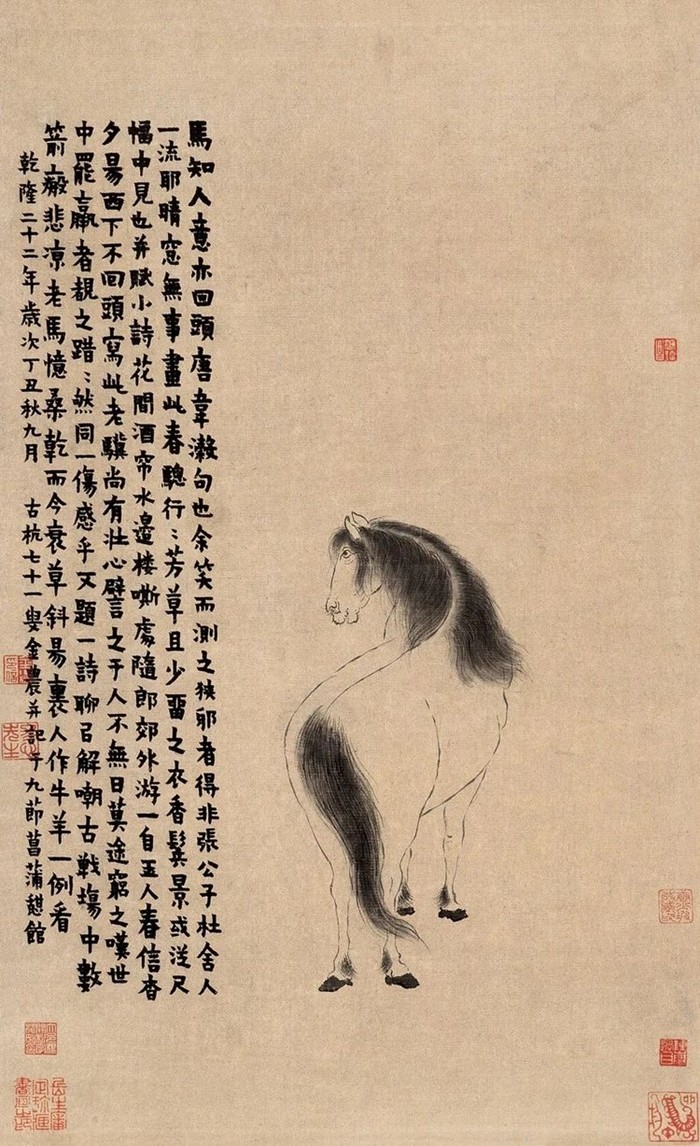 馬知人意亦回頭唐韋濲句也余笑而測之狹邪者得非張公子杜舍人
一流耶晴窓無事畫此春驄行〻芳草且少畱之衣香鬂景或從尺
幅中見也并賦小詩花間酒帘水邉楼嘶處隨郎郊外游一自玉人春信杳
夕昜西下不回頭寫此老驥尚有壯心譬之于人不無日莫途窮之嘆世
中罷羸者覩之踖〻然同一傷感乎又題一詩聊㠯解嘲古戰塲中數
箭瘢悲凉老馬憶桑乾而今衰草斜昜裏人作牛羊一例看
乾隆二十二年歲次丁丑秋九月 古杭七十一叟金農并記于九節菖蒲憇館